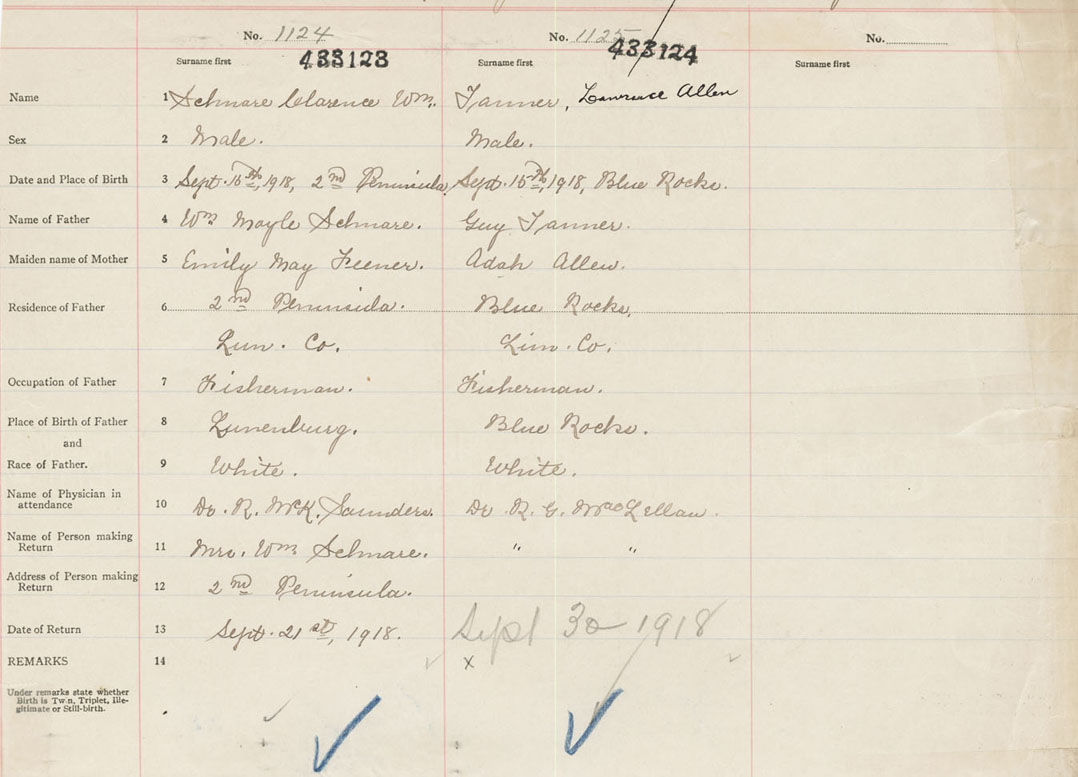 No. 1124 No. 1125 No.
433123 433124
Surname first Surname first Surname first
Name 1 Schnare Clarence Wm. Tanner, Lawrence Allen
Sex 2 Male. Male.
Date and Place of Birth 3 Sept. 15th, 1918, 2nd Peninsula, Sept. 15th, 1918, Blue Rocks.
Name of Father 4 Wm Moyle Schnare. Guy Tanner.
Maiden name of Mother 5 Emily May Feener. Adah Allen.
Residence of Father 6 2nd Peninsula. Blue Rocks,
Lun. Co. Lun. Co.
Occupation of Father 7 Fisherman. Fisherman.
Place of Birth of Father 8 Lunenburg. Blue Rocks.
and
Race of Father. 9 White. White.
Name of Physician in
attendance 10 Dr. R. McK. Saunders. Dr R. G. MacLellan.
Name of Person making
Return 11 Mrs. Wm Schnare. " "
Address of Person making
Return 12 2nd Peninsula.
Date of Return 13 Sept. 21st, 1918. Sept 30 1918
REMARKS 14 x
Under remarks state whether
Birth is Twin, Triplet, Ille-
gitimate or Still-birth.